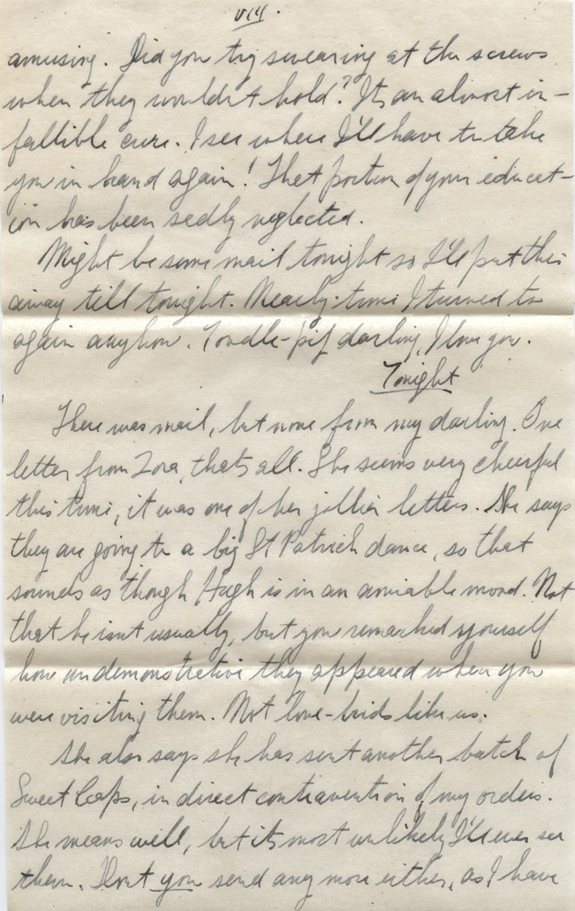 VIII.
amusing. Did you try swearing at the screws
when they wouldn't hold? It's an almost in-
fallible cure. I see where I'll have to take
you in hand again! That portion of your educat-
ion has been sadly neglected.
Might be some mail tonight so I'll put this
away till tonight. Nearly time I turned to
again anyhow. Toodle-pip darling, I love you.
Tonight
There was mail, but none from my darling. One
letter from Zora, that's all. She seems very cheerful
this time, it was one of her jollier letters. She says
they are going to a big St Patrick dance, so that
sounds as though Hugh is in an amiable mood. Not
that he isn't usually, but you remarked yourself
how undemonstrative they appeared when you
were visiting them. Not love-birds like us.
She also says she has sent another batch of
Sweet Caps, in direct contravention of my orders.
She means well, but it's most unlikely I'll ever see
them. Don't you send any more either, as I have